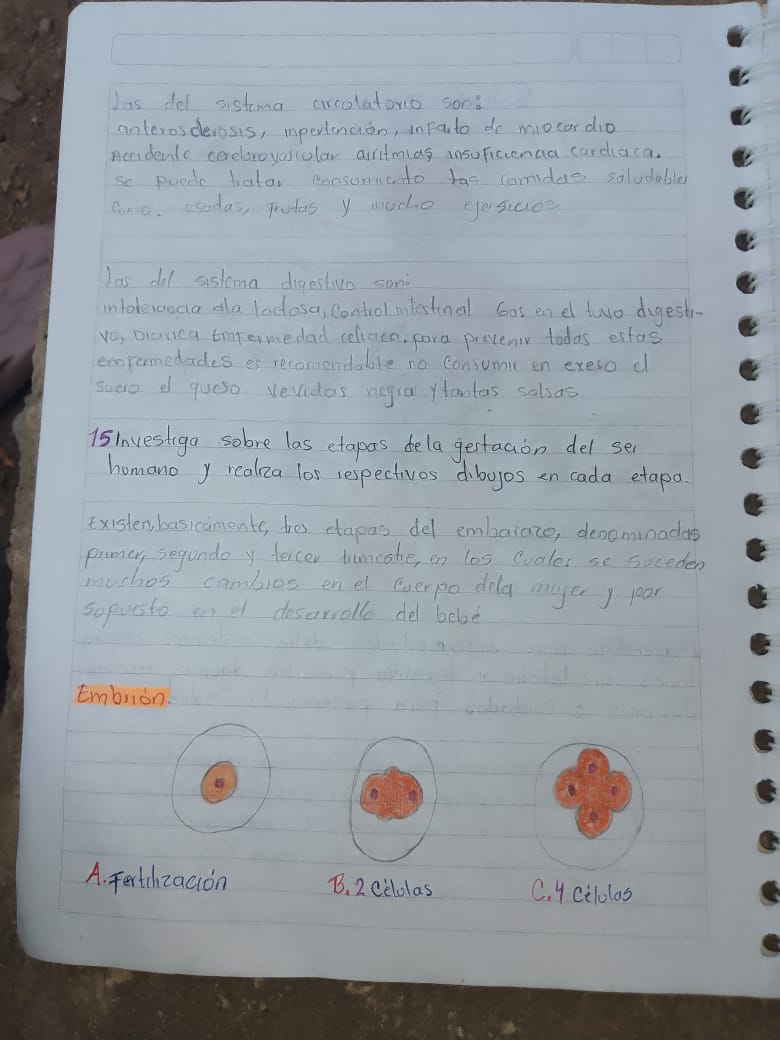 las del sistema circolatorio son:
anterosderosis, inpertención, infarto de miocardio
Accidente cerebrovascular arritmias insuficiencia cardiaca.
se puede tratar consumiento las comidas saludables
como. esadas, frutas y mucho ejersicio
las del sistema digestivo son:
intolerancia ala lactosa, Control intestinal Gas en el tuvo digesti-
vo, Diarica Emfermedad celiaca. para prevenir todas estas
emfermedades es recomendable no consumir en exeso el
suero el queso vevidas negra y tantas salsas.
15 Investiga sobre las etapas dela gestación del ser
humano y realiza los respectivos dibujos en cada etapa.
Existen, basicamente, tres etapas del embarazo, denominadas
primer, segundo y tercer trimestre, en los cuales se suceden
muchos cambios en el cuerpo dela mujer y por
sopuesto en el desarrollo del bebé
Embrión
A. Fertilización
B. 2 Células
C. 4 Células